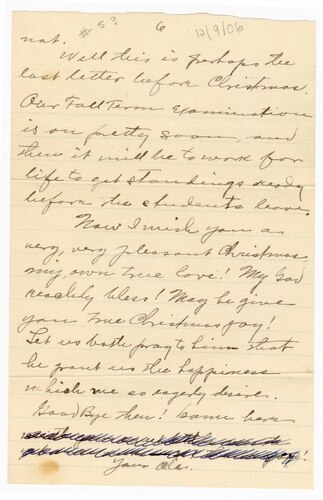 # 5?
6
12/9/06
not.
Well this is perhaps the
last letter before Christmas.
Our Fall Term Examination
is on pretty soon, and
then it will be to work for
life to get standings ready
before the students leave.
Now I wish you a
very, very pleasant Christmas,
my own true love! My God
richly bless! May he give
you true Christmas joy!
Let us both pray to him that
he grant us the happiness
which we so eagerly desire.
Good Bye then!
Your